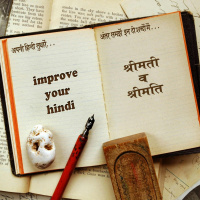 अपनी हिन्दी सुधारें...
improve
your
hindi
अंतर समझें इन दो शब्दों में...
श्रीमती
व
श्रीमति